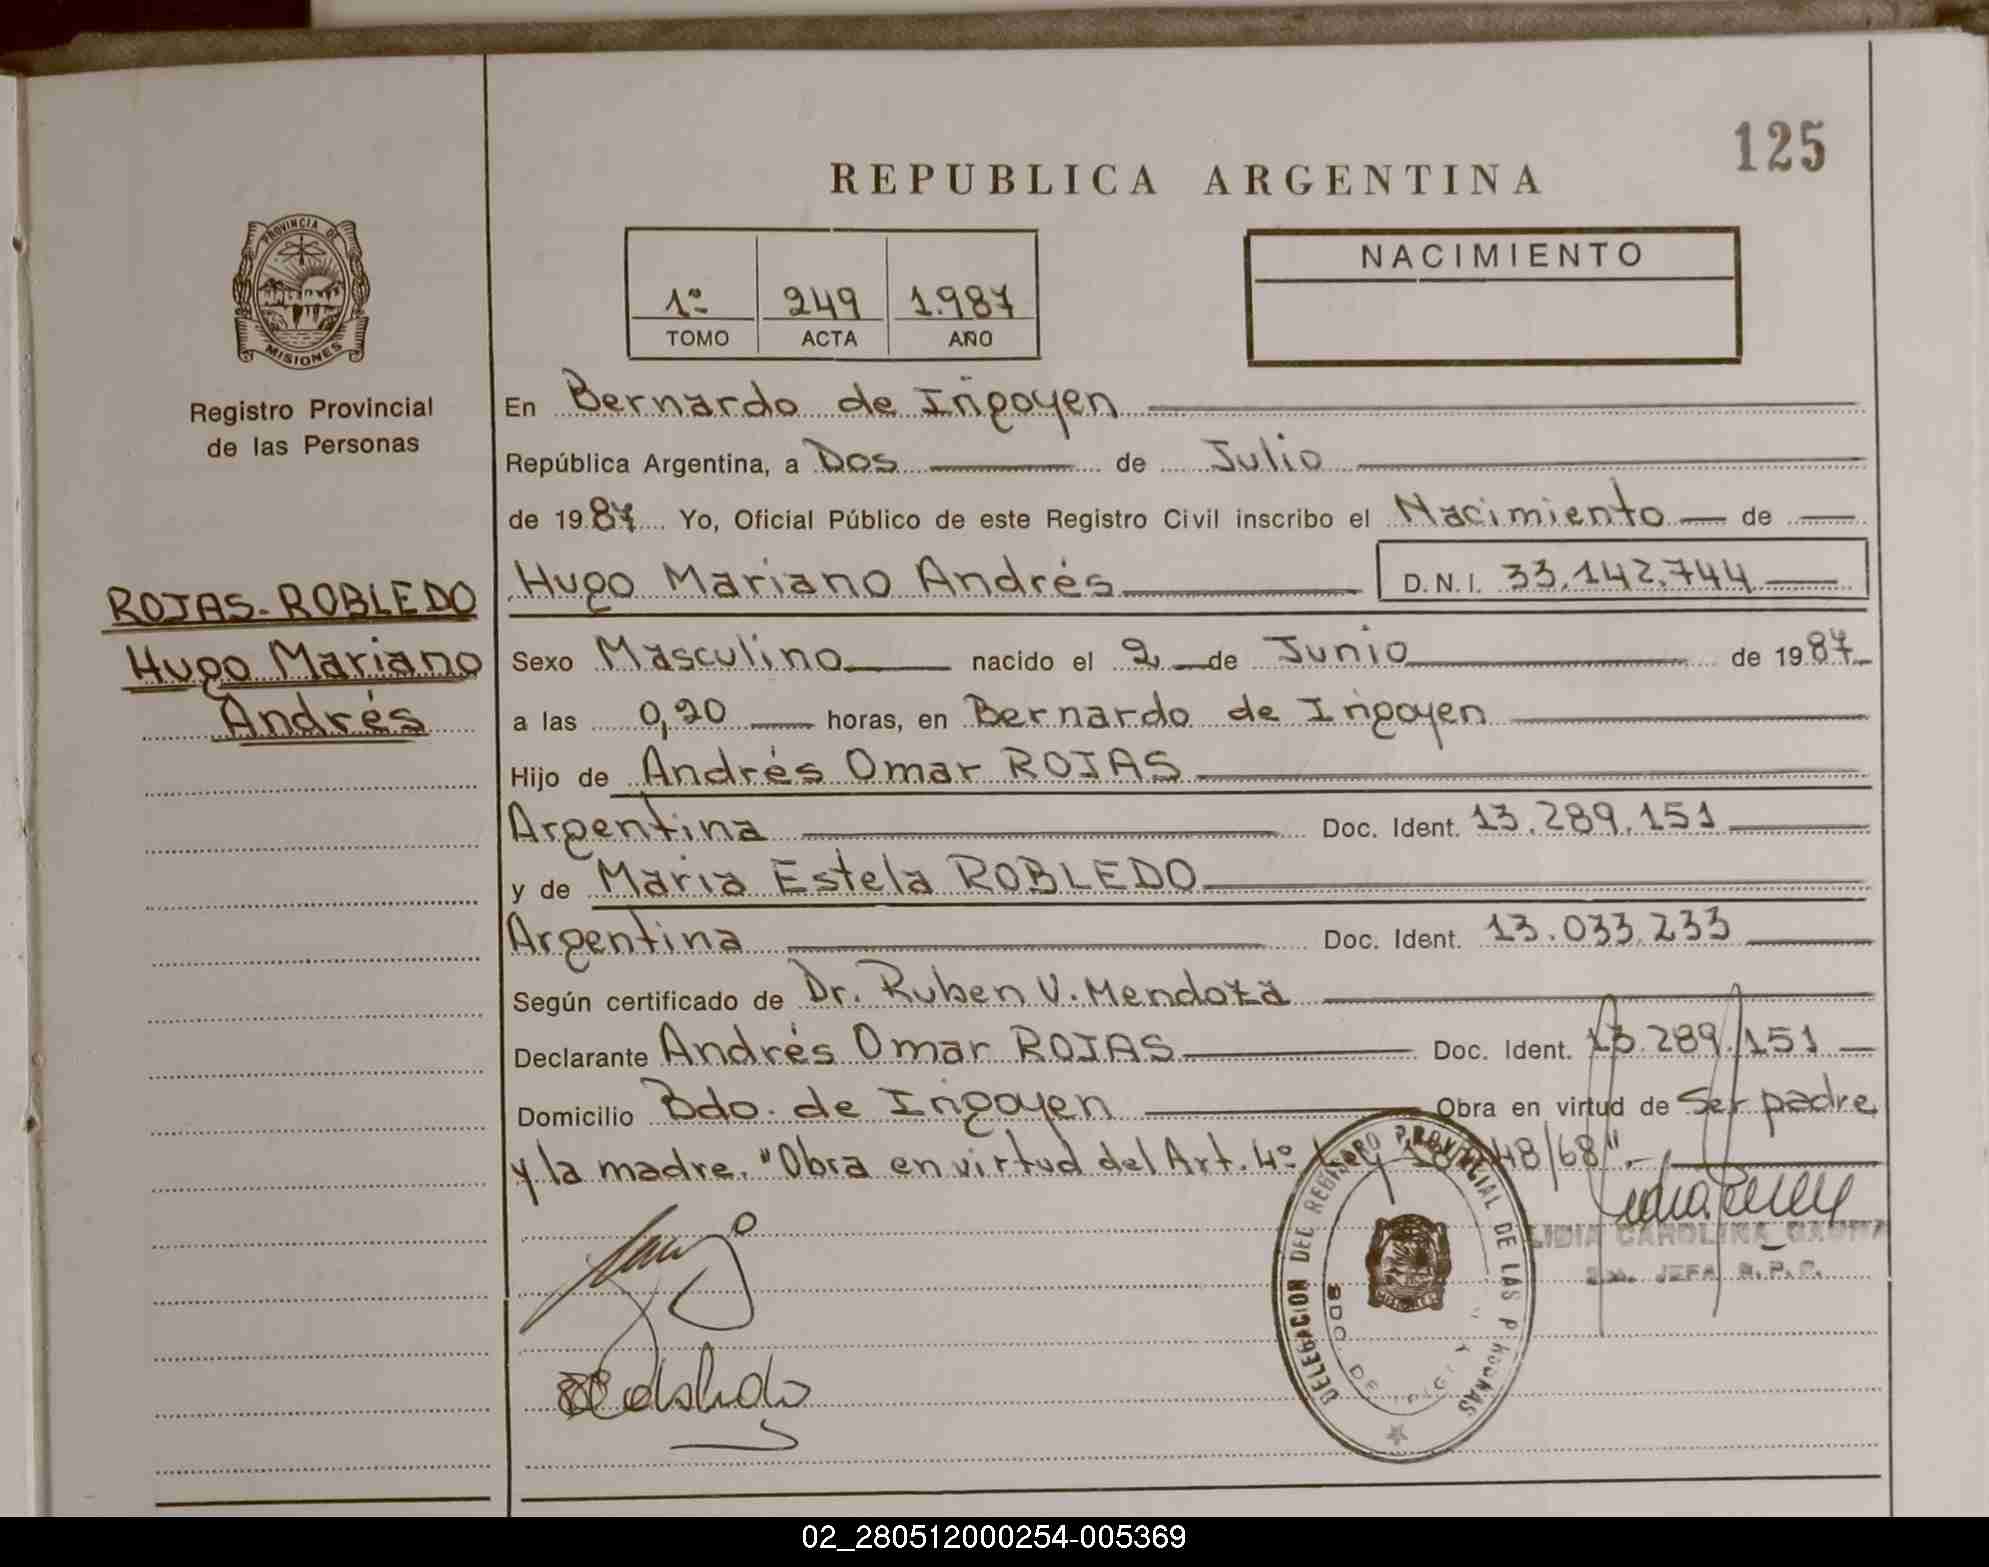 125
REPUBLICA ARGENTINA
PROVINCIA DE
MISIONES
Registro Provincial
de las Personas
1º 249 1.987
TOMO ACTA AÑO
NACIMIENTO
En Bernardo de Irigoyen
República Argentina, a Dos de Julio
de 1987 Yo, Oficial Público de este Registro Civil inscribo el Nacimiento de
Hugo Mariano Andrés D.N.I. 33.142.744
ROJAS-ROBLEDO
Hugo Mariano
Andrés
Sexo Masculino nacido el 2 de Junio de 1987
a las 0,20 horas, en Bernardo de Irigoyen
Hijo de Andrés Omar ROJAS
Argentina Doc. Ident. 13.289.151
y de Maria Estela ROBLEDO
Argentina Doc. Ident. 13.033.233
Según certificado de Dr. Ruben V. Mendoza
Declarante Andrés Omar ROJAS Doc. Ident. 13.289.151
Domicilio Bdo. de Irigoyen Obra en virtud de Ser padre
y la madre. "Obra en virtud del Art. 4º Ley 18.248/68".-
DELEGACION DEL REGISTRO PROVINCIAL DE LAS PERSONAS
BDO DE IRIGOYEN
MISIONES
LIDIA CAROLINA
JEFA R.P.P.
02_280512000254-005369